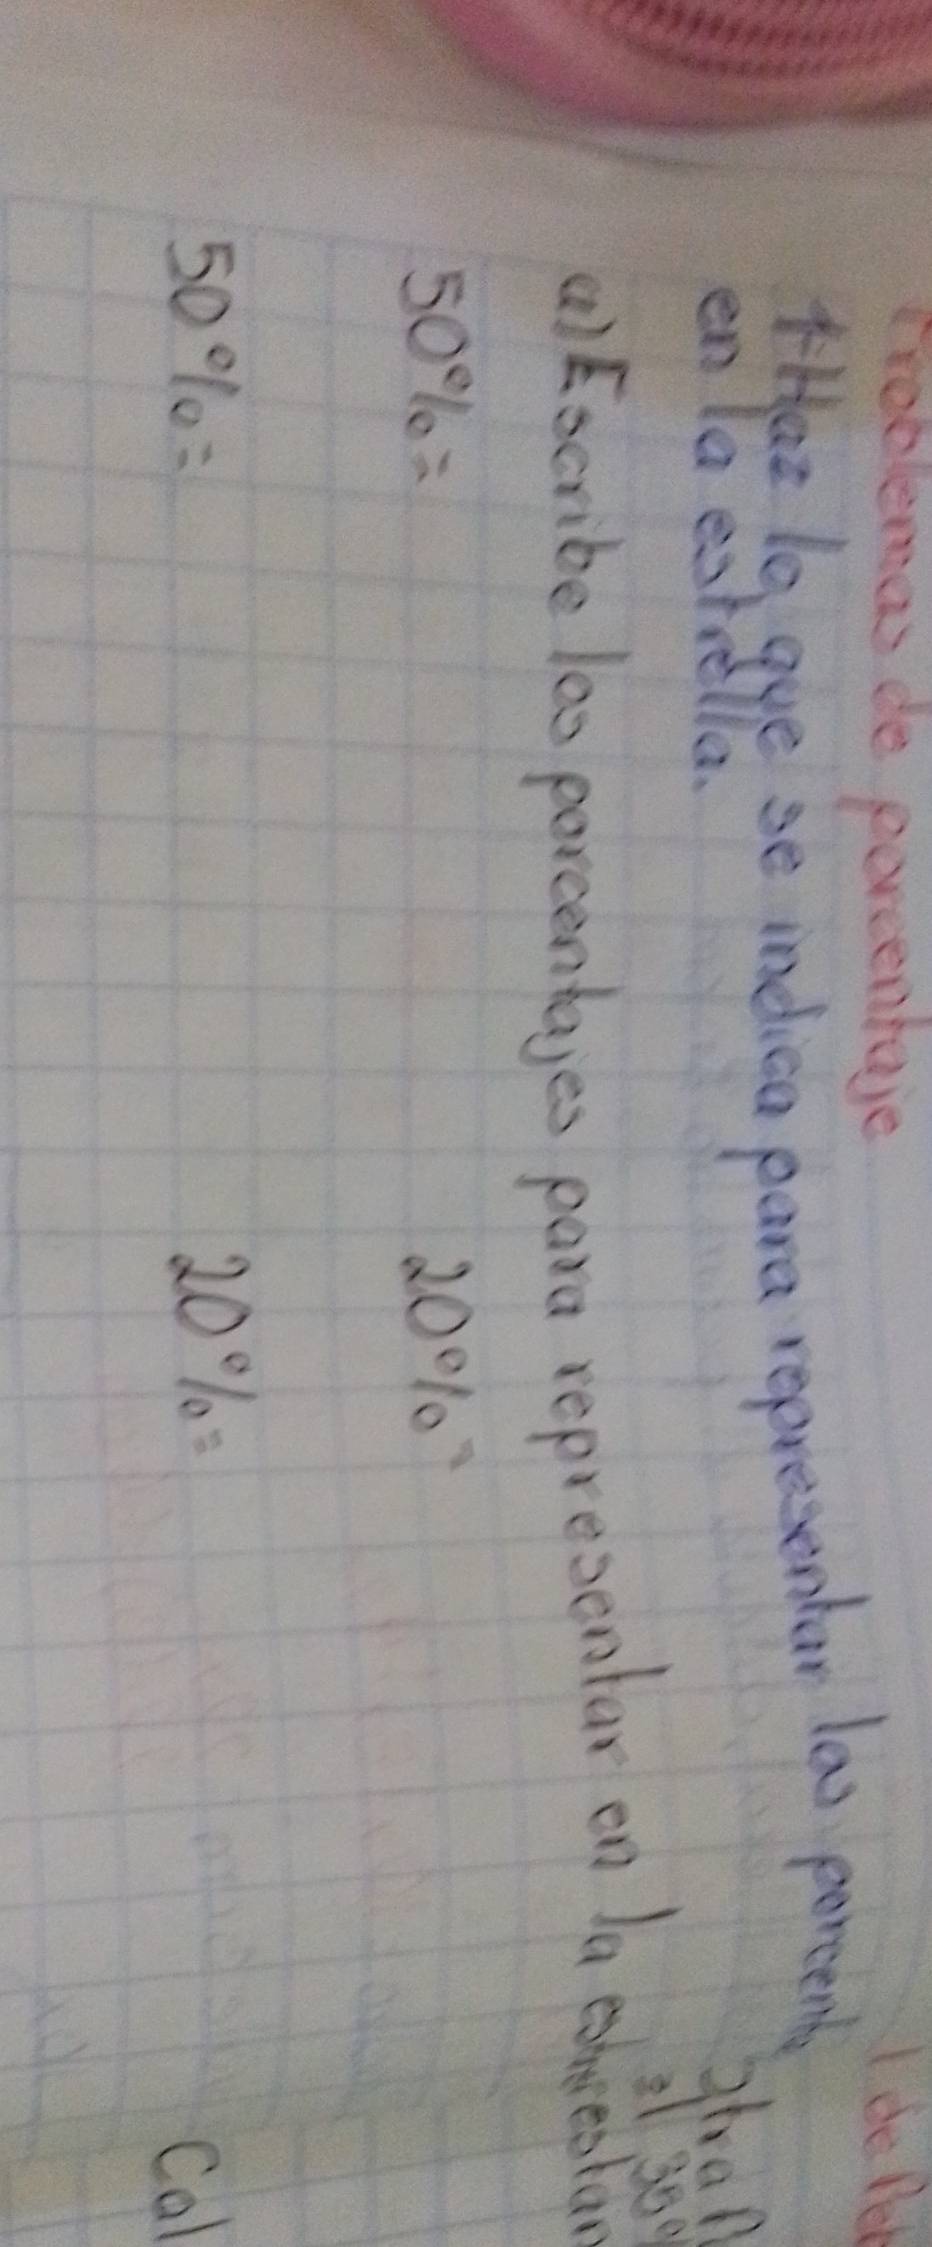 Problemas de porcentaje
1 de
Haz lo que se indica para representar los
en la estrella.
a) Escribe los porcentajes para representar en la
50%=
20%=
50%=
20%=
Cal